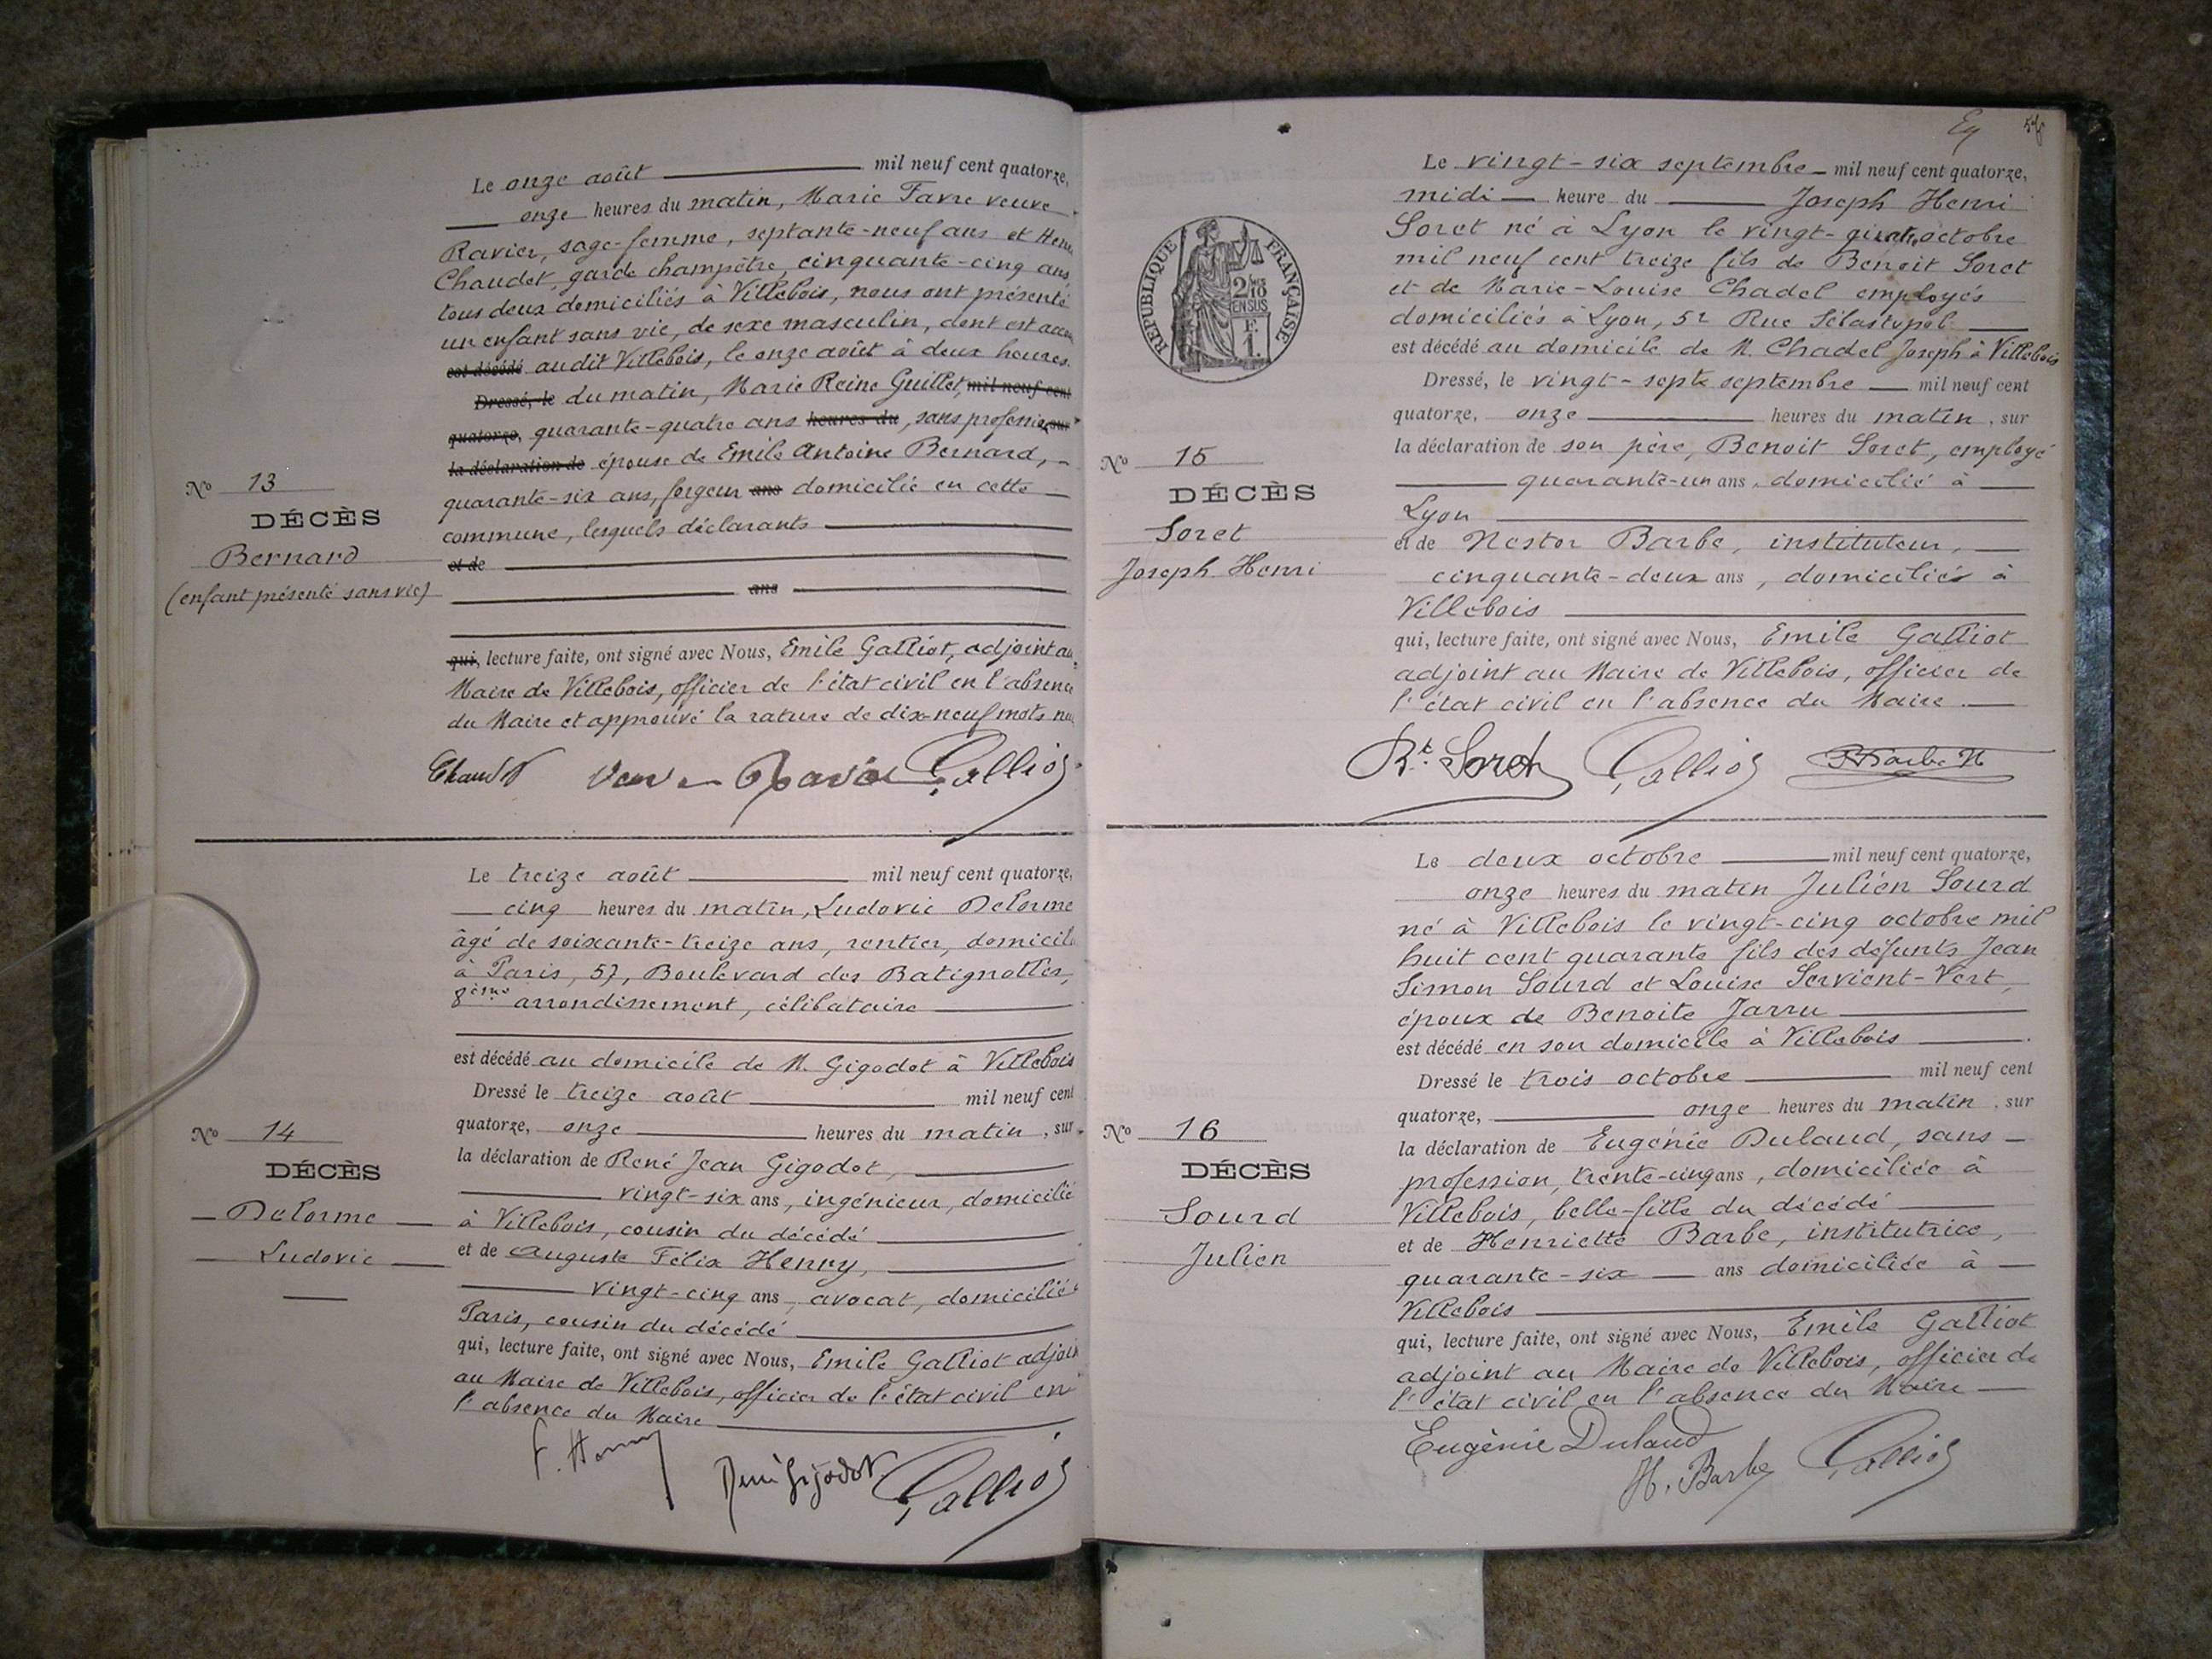 Le onze août mil neuf cent quatorze,
onze heures du matin, Marie Favre veuve
Ravier, sage-femme, septante-neuf ans et
Chaudet, garde champêtre, cinquante-cinq ans
tous deux domiciliés à Villebois, nous ont présenté
un enfant sans vie, de sexe masculin, dont est
est décédé audit Villebois, le onze août à deux heures
Dressé, le du matin, Marie Reine Guillet, mil neuf cent
quatorze, quarante-quatre ans heures du, sans profession, sur
la déclaration de épouse de Emile Antoine Bernard,
No 13
quarante-six ans, forgeur ans domicilié en cette
DÉCÈS
commune, lesquels déclarants
Bernard
et de
(enfant présenté sans vie)
ans
qui, lecture faite, ont signé avec Nous, Emile Galliot, adjoint au
Maire de Villebois, officier de l'état civil en l'absence
du Maire et approuvé la rature de dix-neuf mots
Chaudet veuve Ravier Galliot
Le treize août mil neuf cent quatorze,
cinq heures du matin, Ludovic Delorme
âgé de soixante-treize ans, rentier, domicilié
à Paris, 57, Boulevard des Batignolles,
8ème arrondissement, célibataire
est décédé au domicile de M. Gigodot à Villebois
Dressé le treize août mil neuf cent
quatorze, onze heures du matin, sur
No 14
la déclaration de René Jean Gigodot,
DÉCÈS
vingt-six ans, ingénieur, domicilié
Delorme
à Villebois, cousin du décédé
Ludovic
et de Auguste Félix Henry,
vingt-cinq ans, avocat, domicilié
Paris, cousin du décédé
qui, lecture faite, ont signé avec Nous, Emile Galliot adjoint
au Maire de Villebois, officier de l'état civil en
l'absence du Maire
F. Henry René Gigodot Galliot
Le vingt-six septembre mil neuf cent quatorze,
midi heure du Joseph Henri
Soret né à Lyon le vingt-quatre octobre
mil neuf cent treize fils de Benoit Soret
et de Marie-Louise Chadel employés
domiciliés à Lyon, 52 Rue Sébastopol
est décédé au domicile de M. Chadel Joseph à Villebois
RÉPUBLIQUE FRANÇAISE
2/10 EN SUS
F. 1.
Dressé, le vingt-sept septembre mil neuf cent
quatorze, onze heures du matin, sur
la déclaration de son père, Benoit Soret, employé
No 15
quarante-un ans, domicilié à
DÉCÈS
Lyon
Soret
et de Nestor Barbe, instituteur,
Joseph Henri
cinquante-deux ans, domiciliés à
Villebois
qui, lecture faite, ont signé avec Nous, Emile Galliot
adjoint au Maire de Villebois, officier de
l'état civil en l'absence du Maire.
Bt. Soret Galliot Barbe N
Le deux octobre mil neuf cent quatorze,
onze heures du matin Julien Sourd
né à Villebois le vingt-cinq octobre mil
huit cent quarante fils des défunts Jean
Simon Sourd et Louise Servient-Vert,
époux de Benoite Jarru
est décédé en son domicile à Villebois
Dressé le trois octobre mil neuf cent
quatorze, onze heures du matin, sur
No 16
la déclaration de Eugénie Dulaud, sans
DÉCÈS
profession, trente-cinq ans, domiciliée à
Sourd
Villebois, belle-fille du décédé
Julien
et de Henriette Barbe, institutrice,
quarante-six ans domiciliée à
Villebois
qui, lecture faite, ont signé avec Nous, Emile Galliot
adjoint au Maire de Villebois, officier de
l'état civil en l'absence du Maire
Eugènie Dulaud
H. Barbe Galliot